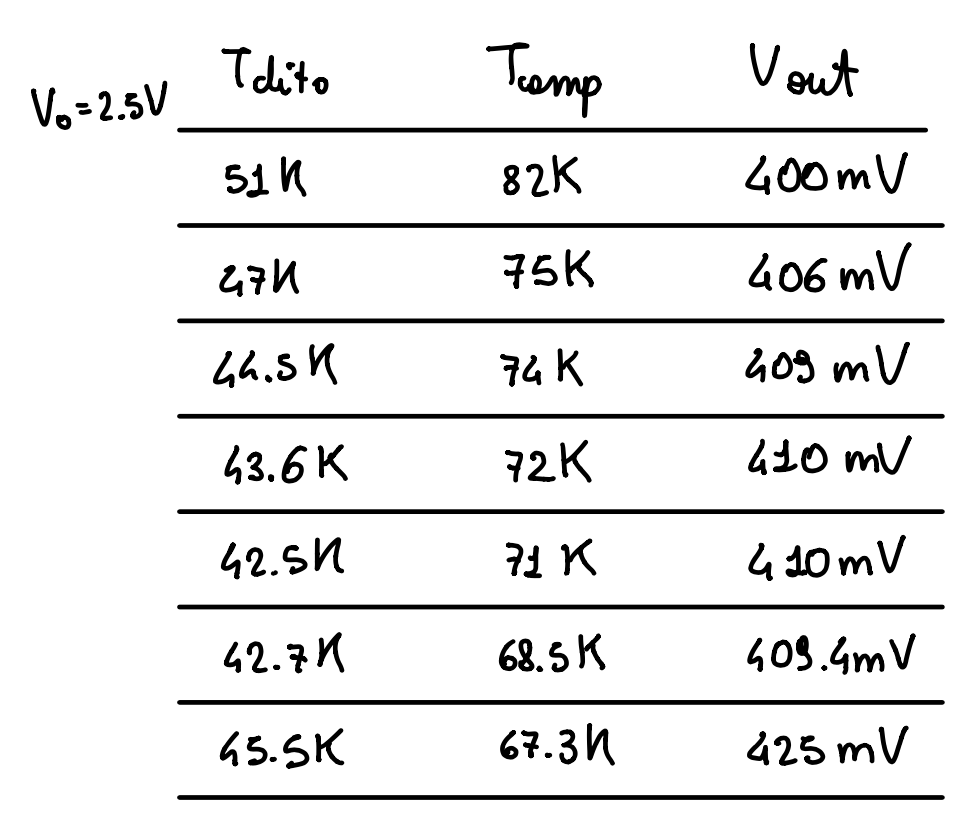 Tdito Tcomp Vout
V₀=2.5V
51K 82K 400mV
47K 75K 406 mV
44.5K 74K 409 mV
43.6K 72K 410 mV
42.5K 71 K 410mV
42.7K 68.5K 409.4mV
45.5K 67.3K 425 mV